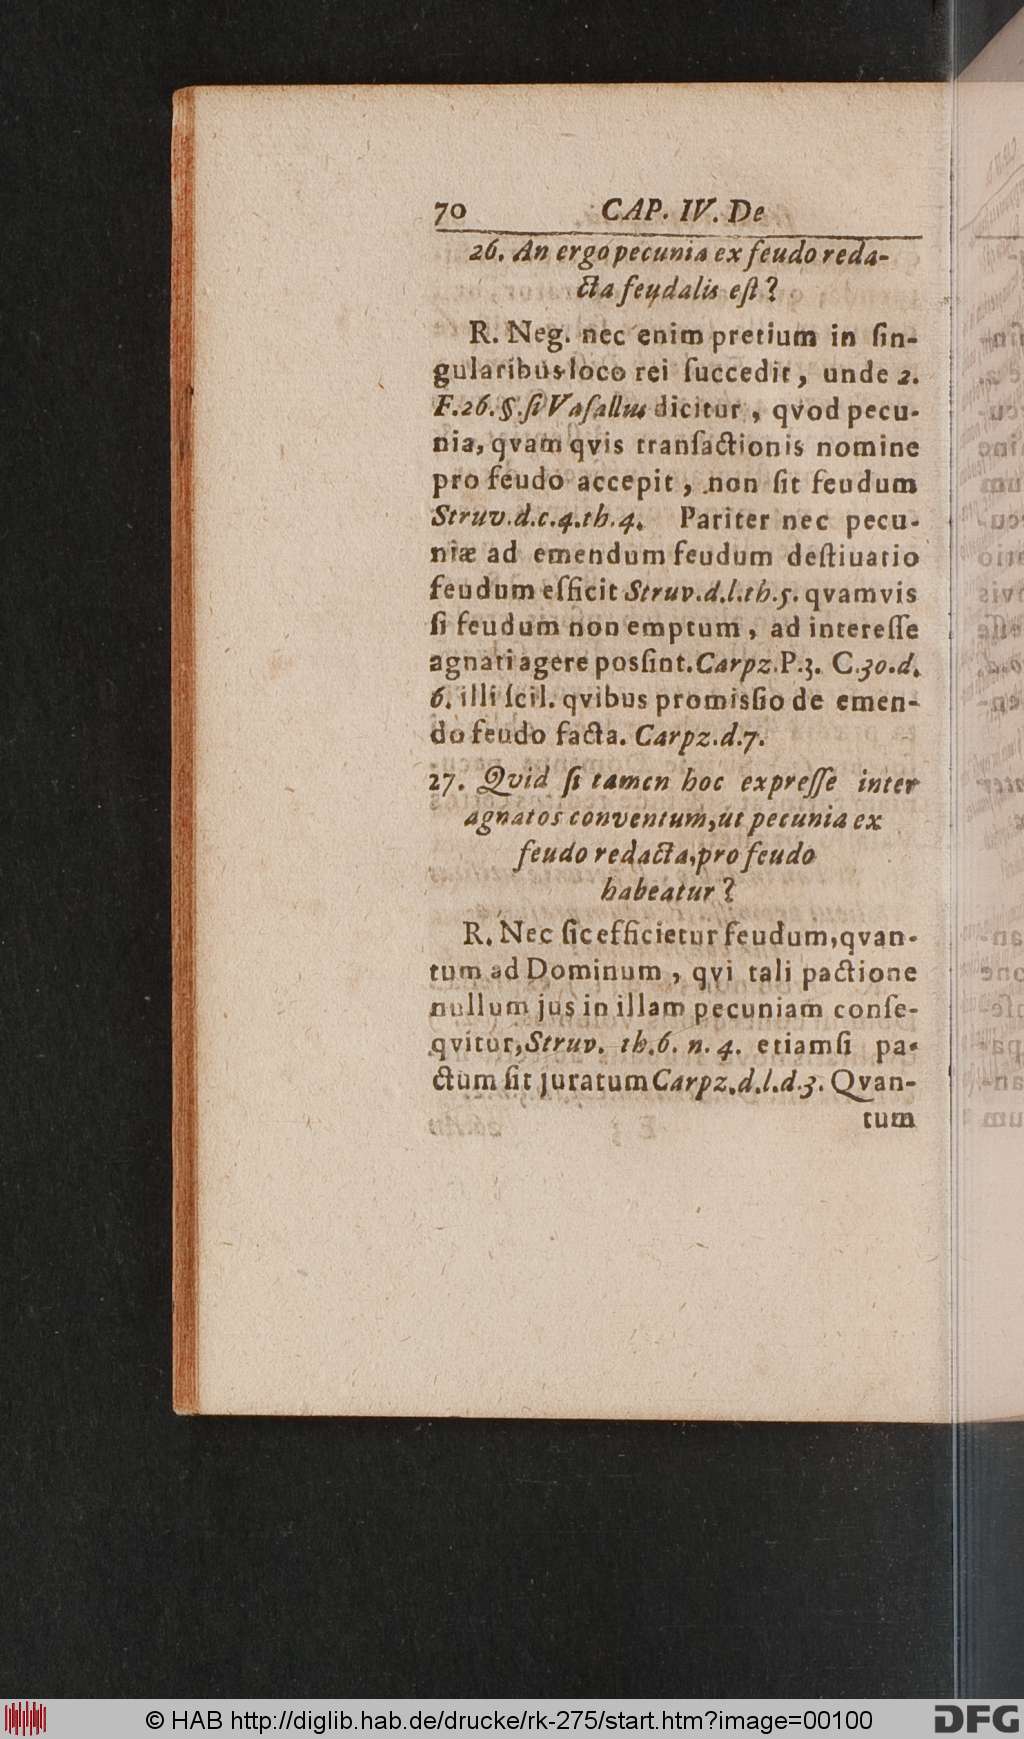 70 CAP. IV. De
26. An ergo pecunia ex feudo reda-
cta feudalis eſt?
R. Neg. nec enim pretium in ſin-
gularibus loco rei ſuccedit, unde 2.
F. 26. §. ſi Vaſallus dicitur, qvod pecu-
nia, qvam qvis tranſactionis nomine
pro feudo accepit, non ſit feudum
Struv. d. c. 4. th. 4. Pariter nec pecu-
niæ ad emendum feudum deſtiuatio
feudum efficit Struv. d. l. th. 5. qvamvis
ſi feudum non emptum, ad intereſſe
agnati agere posſint. Carpz. P. 3. C. 30. d.
6. illi ſcil. qvibus promisſio de emen-
do feudo facta. Carpz. d. 7.
27. Qvid ſi tamen hoc expreſſe inter
agnatos conventum, ut pecunia ex
feudo redacta, pro feudo
habeatur?
R. Nec ſic efficietur feudum, qvan-
tum ad Dominum, qvi tali pactione
nullum jus in illam pecuniam conſe-
qvitur, Struv. th. 6. n. 4. etiamſi pa-
ctum ſit juratum Carpz. d. l. d. 3. Qvan-
tum
© HAB http://diglib.hab.de/drucke/rk-275/start.htm?image=00100
DFG